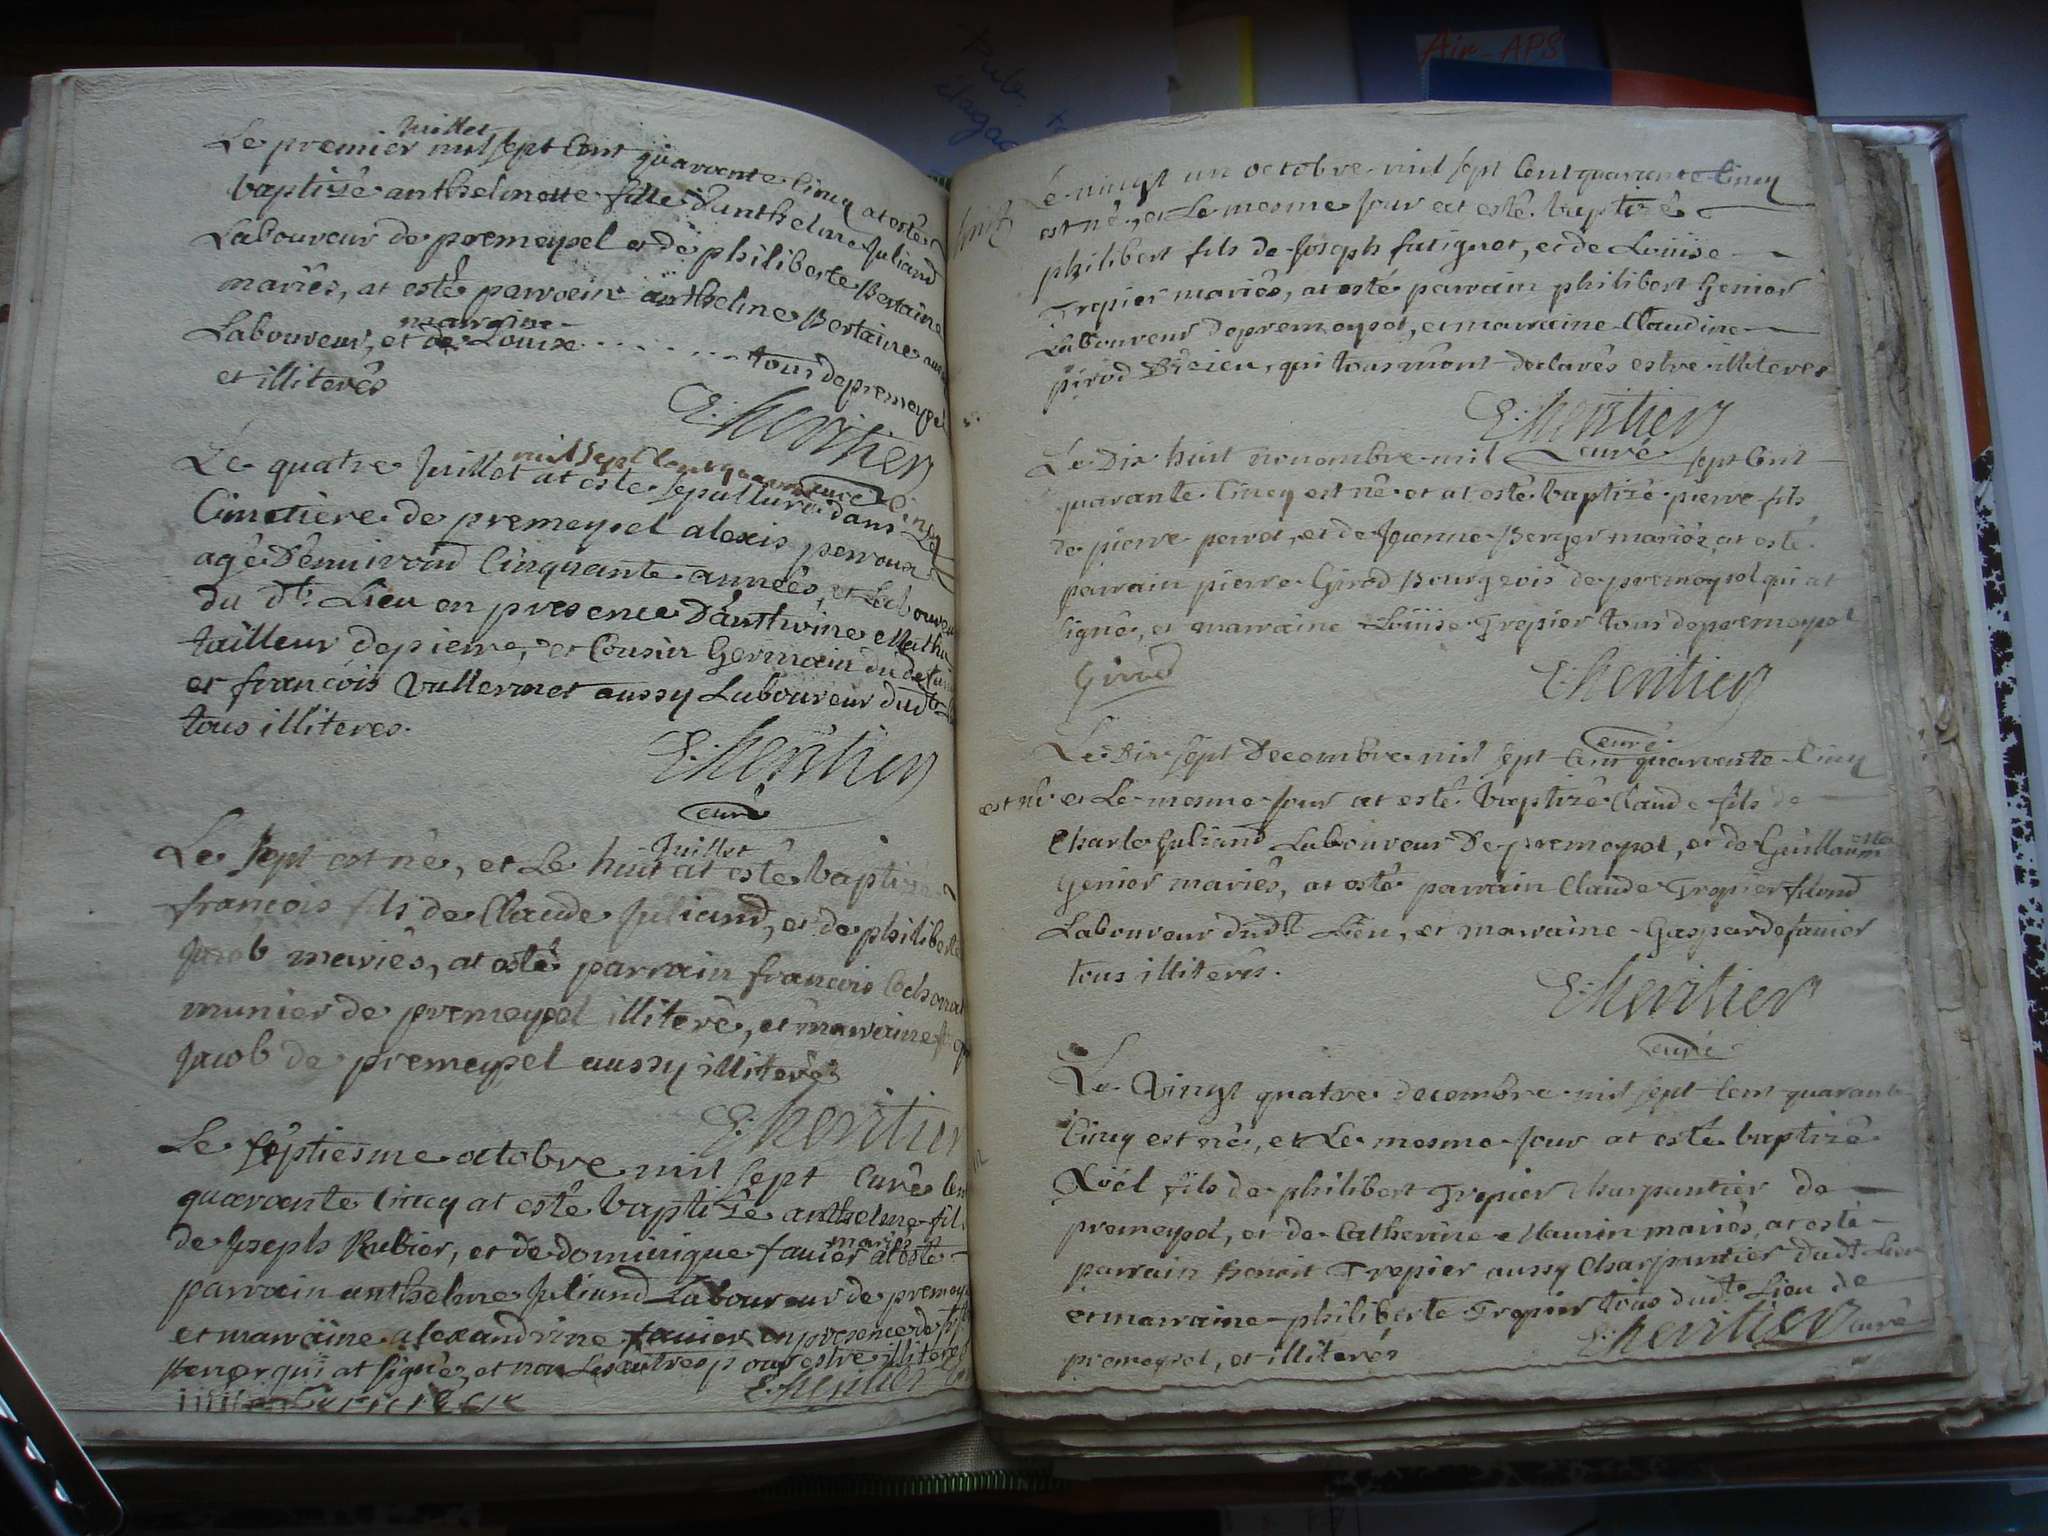 Juillet
Le premier mil sept Cent quarante Cincq at esté
baptizée anthelmette fille d'anthelme Juliand
Laboureur de premeyzel et de philiberte Bertaine
mariés, at esté parrain anthelme Bertaine aussy
marraine
Laboureur, et de Louise - - - - - - - - tous de premeyzel
et illiterés
E: heritier
curé
mil sept Cent quarante Cincq
Le quatre Juillet at esté sepulturé dans Le
Cimetiere de premeyzel alexis perroux
agé D'enuirond Cinquante années, et Laboureur
du dt. Lieu en presence D'anthoine
tailleur de pierre, et Cousin Germain du defunt
et françois Vullermet aussy Laboureur dudt.
tous illiteres.
E: heritier
curé
Juillet
Le sept est né, et Le huit at esté baptizé
francois fils de Claude Juliand, et de philiberte
Jacob mariés, at esté parrain francois
munier de premeyzel illiteré, et marraine
Jacob de premeyzel aussy illiterée
E: heritier
curé
Le septiesme octobre mil sept Cent
quarante Cincq at esté baptizé anthelme fils
mariés
de Joseph Rubier, et de dominique fauier at esté
parrain anthelme Juliand Laboureur de premeyzel
et marraine alexandrine fauier en presence de
qui at signéz, et non Les autres pour estre illiterés
E: heritier
Le vingt un octobre mil sept Cent quarante Cincq
est né, et Le mesme Jour at esté baptizé
philibert fils de Joseph fatignet, et de Louise
Trepier mariés, at esté parrain philibert Genier
Laboureur de premeyzel, et marraine Claudine
pirod D'izieu, qui tous m'ont declarés estre illiteres
E: heritier
curé
Le Dix huit nouembre mil sept Cent
quarante Cincq est né et at esté baptizé pierre fils
de pierre perret, et de Jeanne Berger mariés, at esté
parrain pierre Girod Bourgeois de premeyzel qui at
signé, et marraine Louise Trepier tous de premeyzel
Girod
E: heritier
curé
Le Dix sept Decembre mil sept Cent quarante Cincq
est né et Le mesme Jour at esté baptizé Claude fils de
Charle Juliand Laboureur De premeyzel, et de Guillaumette
Genier mariés, at esté parrain Claude Trepier
Laboureur dudt. Lieu, et marraine Gasparde fauier
tous illiterés.
E: heritier
curé
Le Vingt quatre decembre mil sept Cent quarante
Cincq est né, et Le mesme Jour at esté baptizé
Noël fils de philibert Trepier Charpentier de
premeyzel, et de Catherine Maurin mariés, at esté
parrain Benoit Trepier aussy Charpentier dudt. Lieu
et marraine philiberte Trepier tous dudt. Lieu de
premeyzel, et illiterés
E: heritier curé
Air-APS